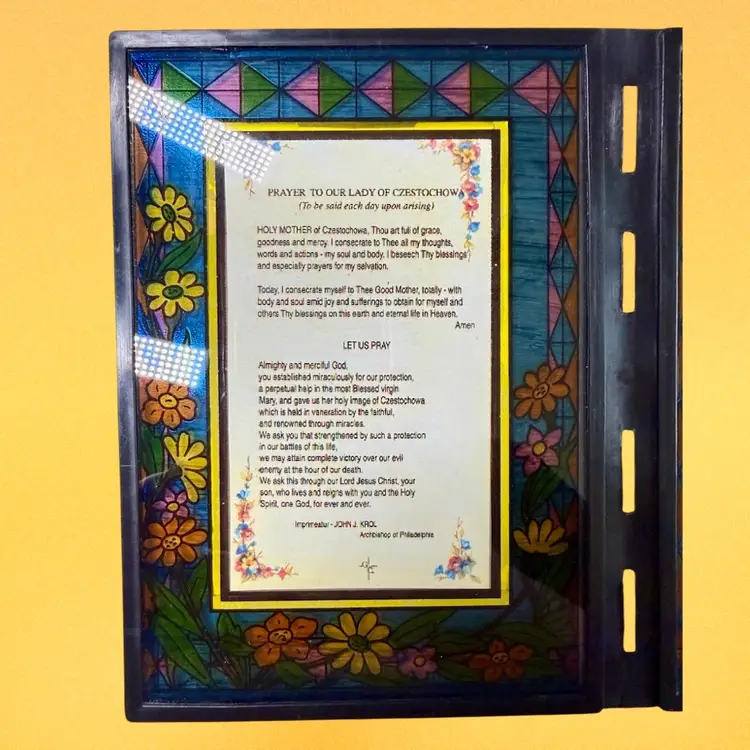 PRAYER TO OUR LADY OF CZESTOCHOWA
(To be said each day upon arising)
HOLY MOTHER of Czestochowa, Thou art full of grace,
goodness and mercy. I consecrate to Thee all my thoughts,
words and actions - my soul and body. I beseech Thy blessings
and especially prayers for my salvation.
Today, I consecrate myself to Thee Good Mother, totally - with
body and soul amid joy and sufferings to obtain for myself and
others Thy blessings on this earth and eternal life in Heaven.
Amen
LET US PRAY
Almighty and merciful God,
you established miraculously for our protection,
a perpetual help in the most Blessed virgin
Mary, and gave us her holy image of Czestochowa
which is held in veneration by the faithful,
and renowned through miracles.
We ask you that strengthened by such a protection
in our battles of this life,
we may attain complete victory over our evil
enemy at the hour of our death.
We ask this through our Lord Jesus Christ, your
son, who lives and reigns with you and the Holy
Spirit, one God, for ever and ever.
Imprimeatur - JOHN J. KROL
Archbishop of Philadelphia